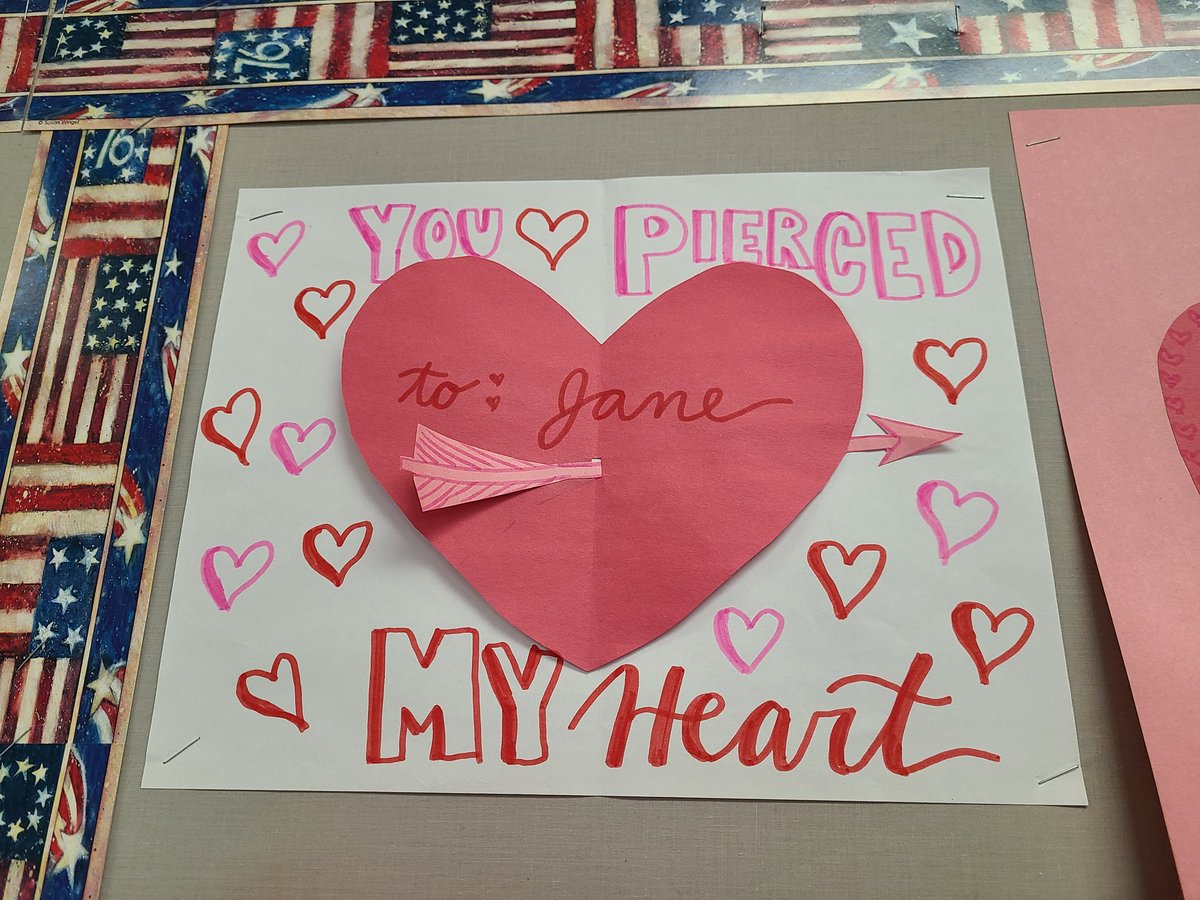 76
© Susan Wingel
76
YOU PIERCED
to: Jane
MY Heart